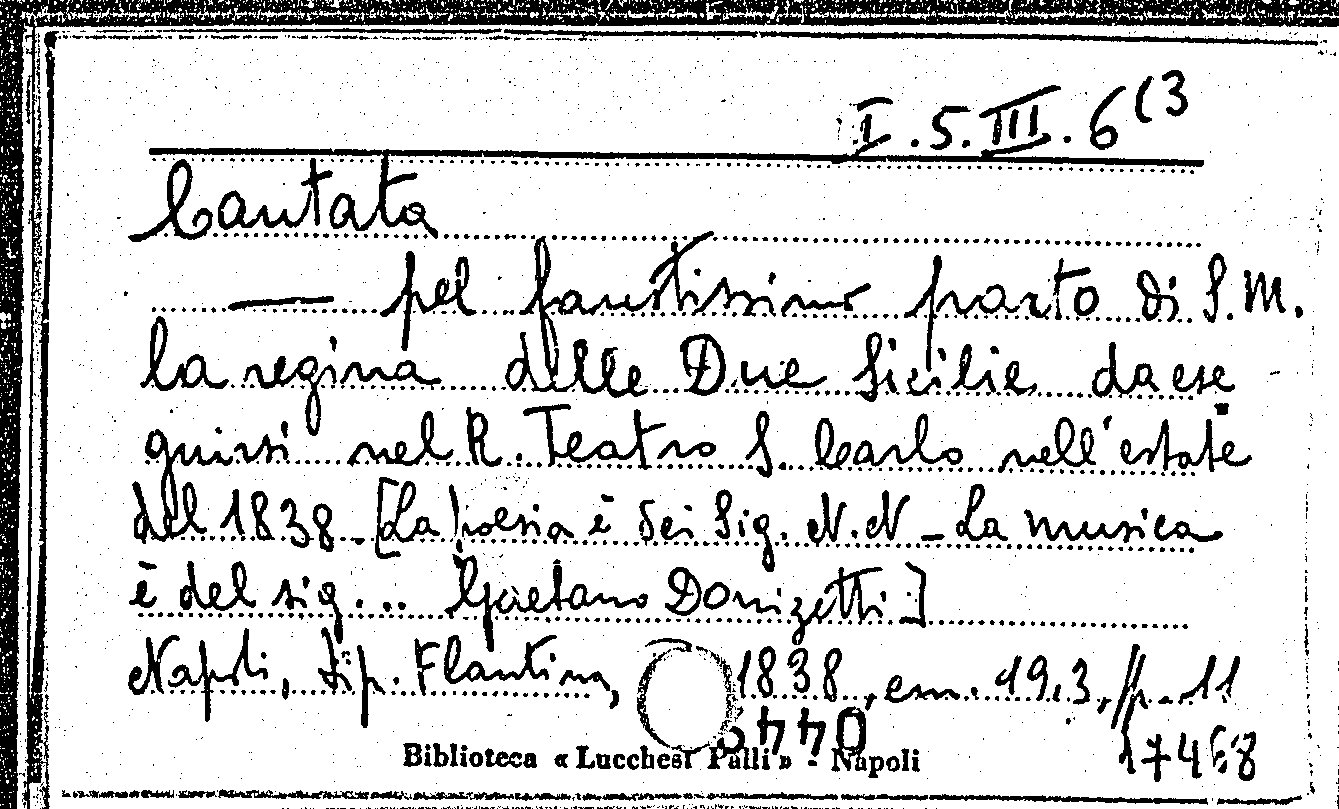 I.5.III.6(3
Cantata
— pel faustissimo parto di S.M.
la regina delle Due Sicilie da ese
guirsi nel R. Teatro S. Carlo nell'estate
del 1838 - [La poesia è dei Sig. N.N - La musica
è del sig... Gaetano Donizetti]
Napoli, tip. Flautina, 1838, cm. 19.3, p. 11
Biblioteca « Lucchesi Palli » - Napoli